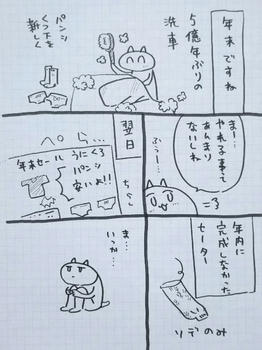 年末ですね
5億年ぶりの
洗車
パンツ
くつ下を
新しく
まー…
やれる事って
あんまり
ないしね
ぶぅー…
=3
翌日
ペら…
年末セール
うにくろ
パンツ
安いよ!!
ちらっ
年内に
完成しなかった
セーター
ソデのみ
ま…
いっか…